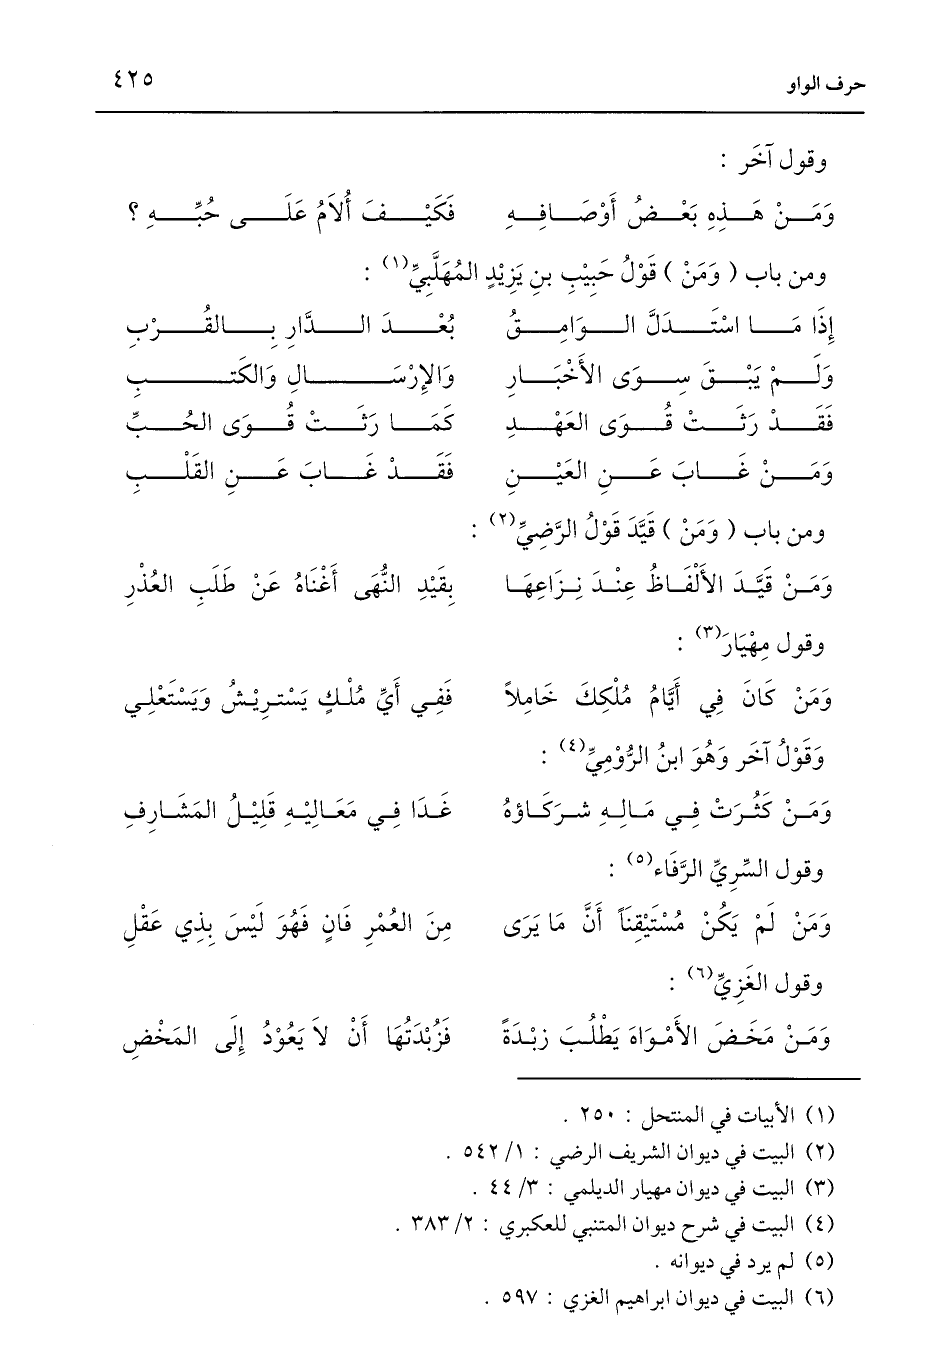 حرف الواو ٤٢٥
وقول آخَر :
وَمَنْ هَذِهِ بَعْضُ أَوْصَافِهِ فَكَيْفَ أُلاَمُ عَلَى حُبِّهِ ؟
ومن باب ( وَمَنْ ) قَوْلُ حَبِيْبِ بنِ يَزِيْدٍ المُهَلَّبِيِّ(١) :
إِذَا مَا اسْتَدَلَّ الوَامِقُ بُعْدَ الدَّارِ بِالقُرْبِ
وَلَمْ يَبْقَ سِوَى الأَخْبَارِ وَالإِرْسَالِ وَالكَتبِ
فَقَدْ رَثَتْ قُوَى العَهْدِ كَمَا رَثَتْ قُوَى الحُبِّ
وَمَنْ غَابَ عَنِ العَيْنِ فَقَدْ غَابَ عَنِ القَلْبِ
ومن باب ( وَمَنْ ) قَيَّدَ قَوْلُ الرَّضِيِّ(٢) :
وَمَنْ قَيَّدَ الأَلْفَاظُ عِنْدَ نِزَاعِهَا بِقَيْدِ النُّهَى أَغْنَاهُ عَنْ طَلَبِ العُذْرِ
وقول مِهْيَارَ(٣) :
وَمَنْ كَانَ فِي أَيَّامُ مُلْكِكَ خَامِلاً فَفِي أَيِّ مُلْكٍ يَسْتَرِيْشُ وَيَسْتَعْلِي
وَقَوْلُ آخَر وَهُوَ ابنُ الرُّوْمِيِّ(٤) :
وَمَنْ كَثُرَتْ فِي مَالِهِ شرَكَاؤهُ غَدَا فِي مَعَالِيْهِ قَلِيْلُ المَشَارِفِ
وقول السِّرِيِّ الرَّفَاءِ(٥) :
وَمَنْ لَمْ يَكُنْ مُسْتَيْقِناً أَنَّ مَا يَرَى مِنَ العُمْرِ فَانٍ فَهُوَ لَيْسَ بِذِي عَقْلِ
وقول الغَزِيِّ(٦) :
وَمَنْ مَخَضَ الأَمْوَاهَ يَطْلُبَ زبْدَةً فَزُبْدَتُهَا أَنْ لاَ يَعُوْدُ إِلَى المَخْضِ
(١) الأبيات في المنتحل : ٢٥٠ .
(٢) البيت في ديوان الشريف الرضي : ١/ ٥٤٢ .
(٣) البيت في ديوان مهيار الديلمي : ٣/ ٤٤ .
(٤) البيت في شرح ديوان المتنبي للعكبري : ٢/ ٣٨٣ .
(٥) لم يرد في ديوانه .
(٦) البيت في ديوان ابراهيم الغزي : ٥٩٧ .